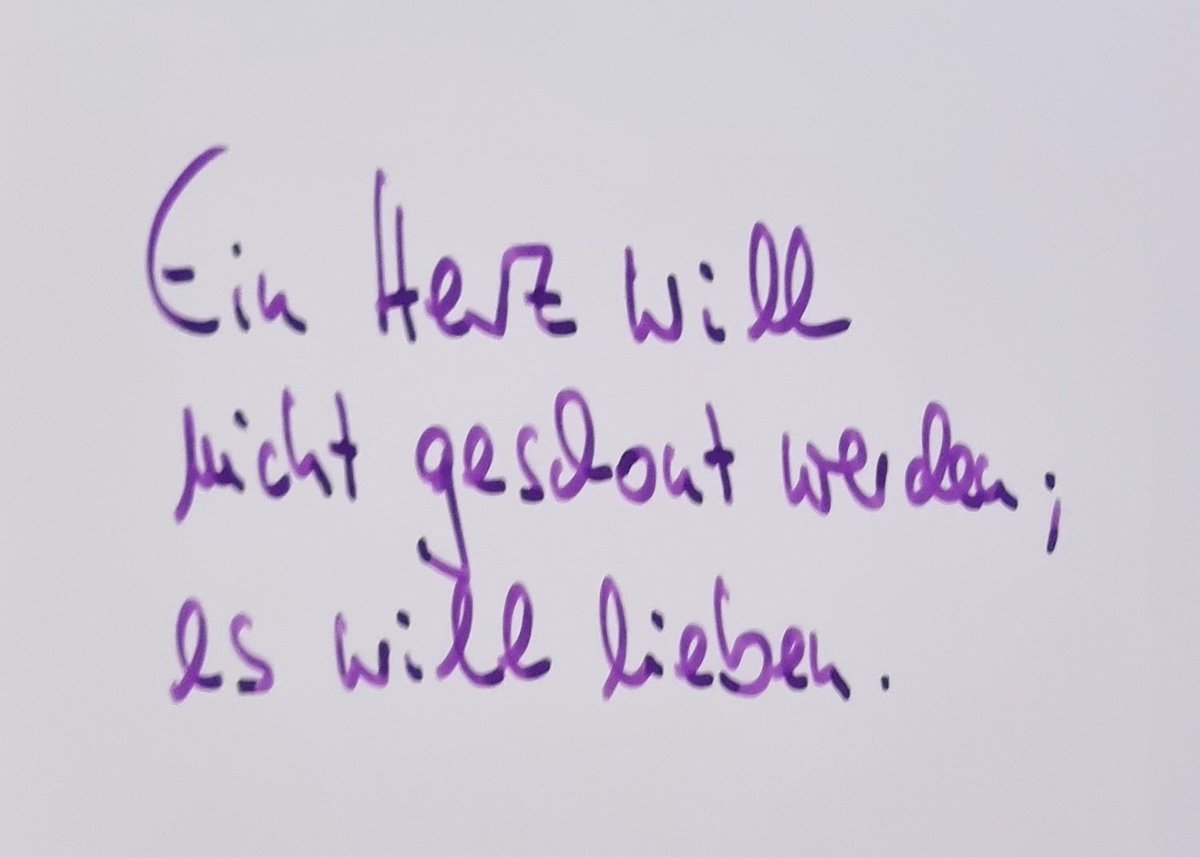 Ein Herz will
nicht geschont werden;
es will lieben.